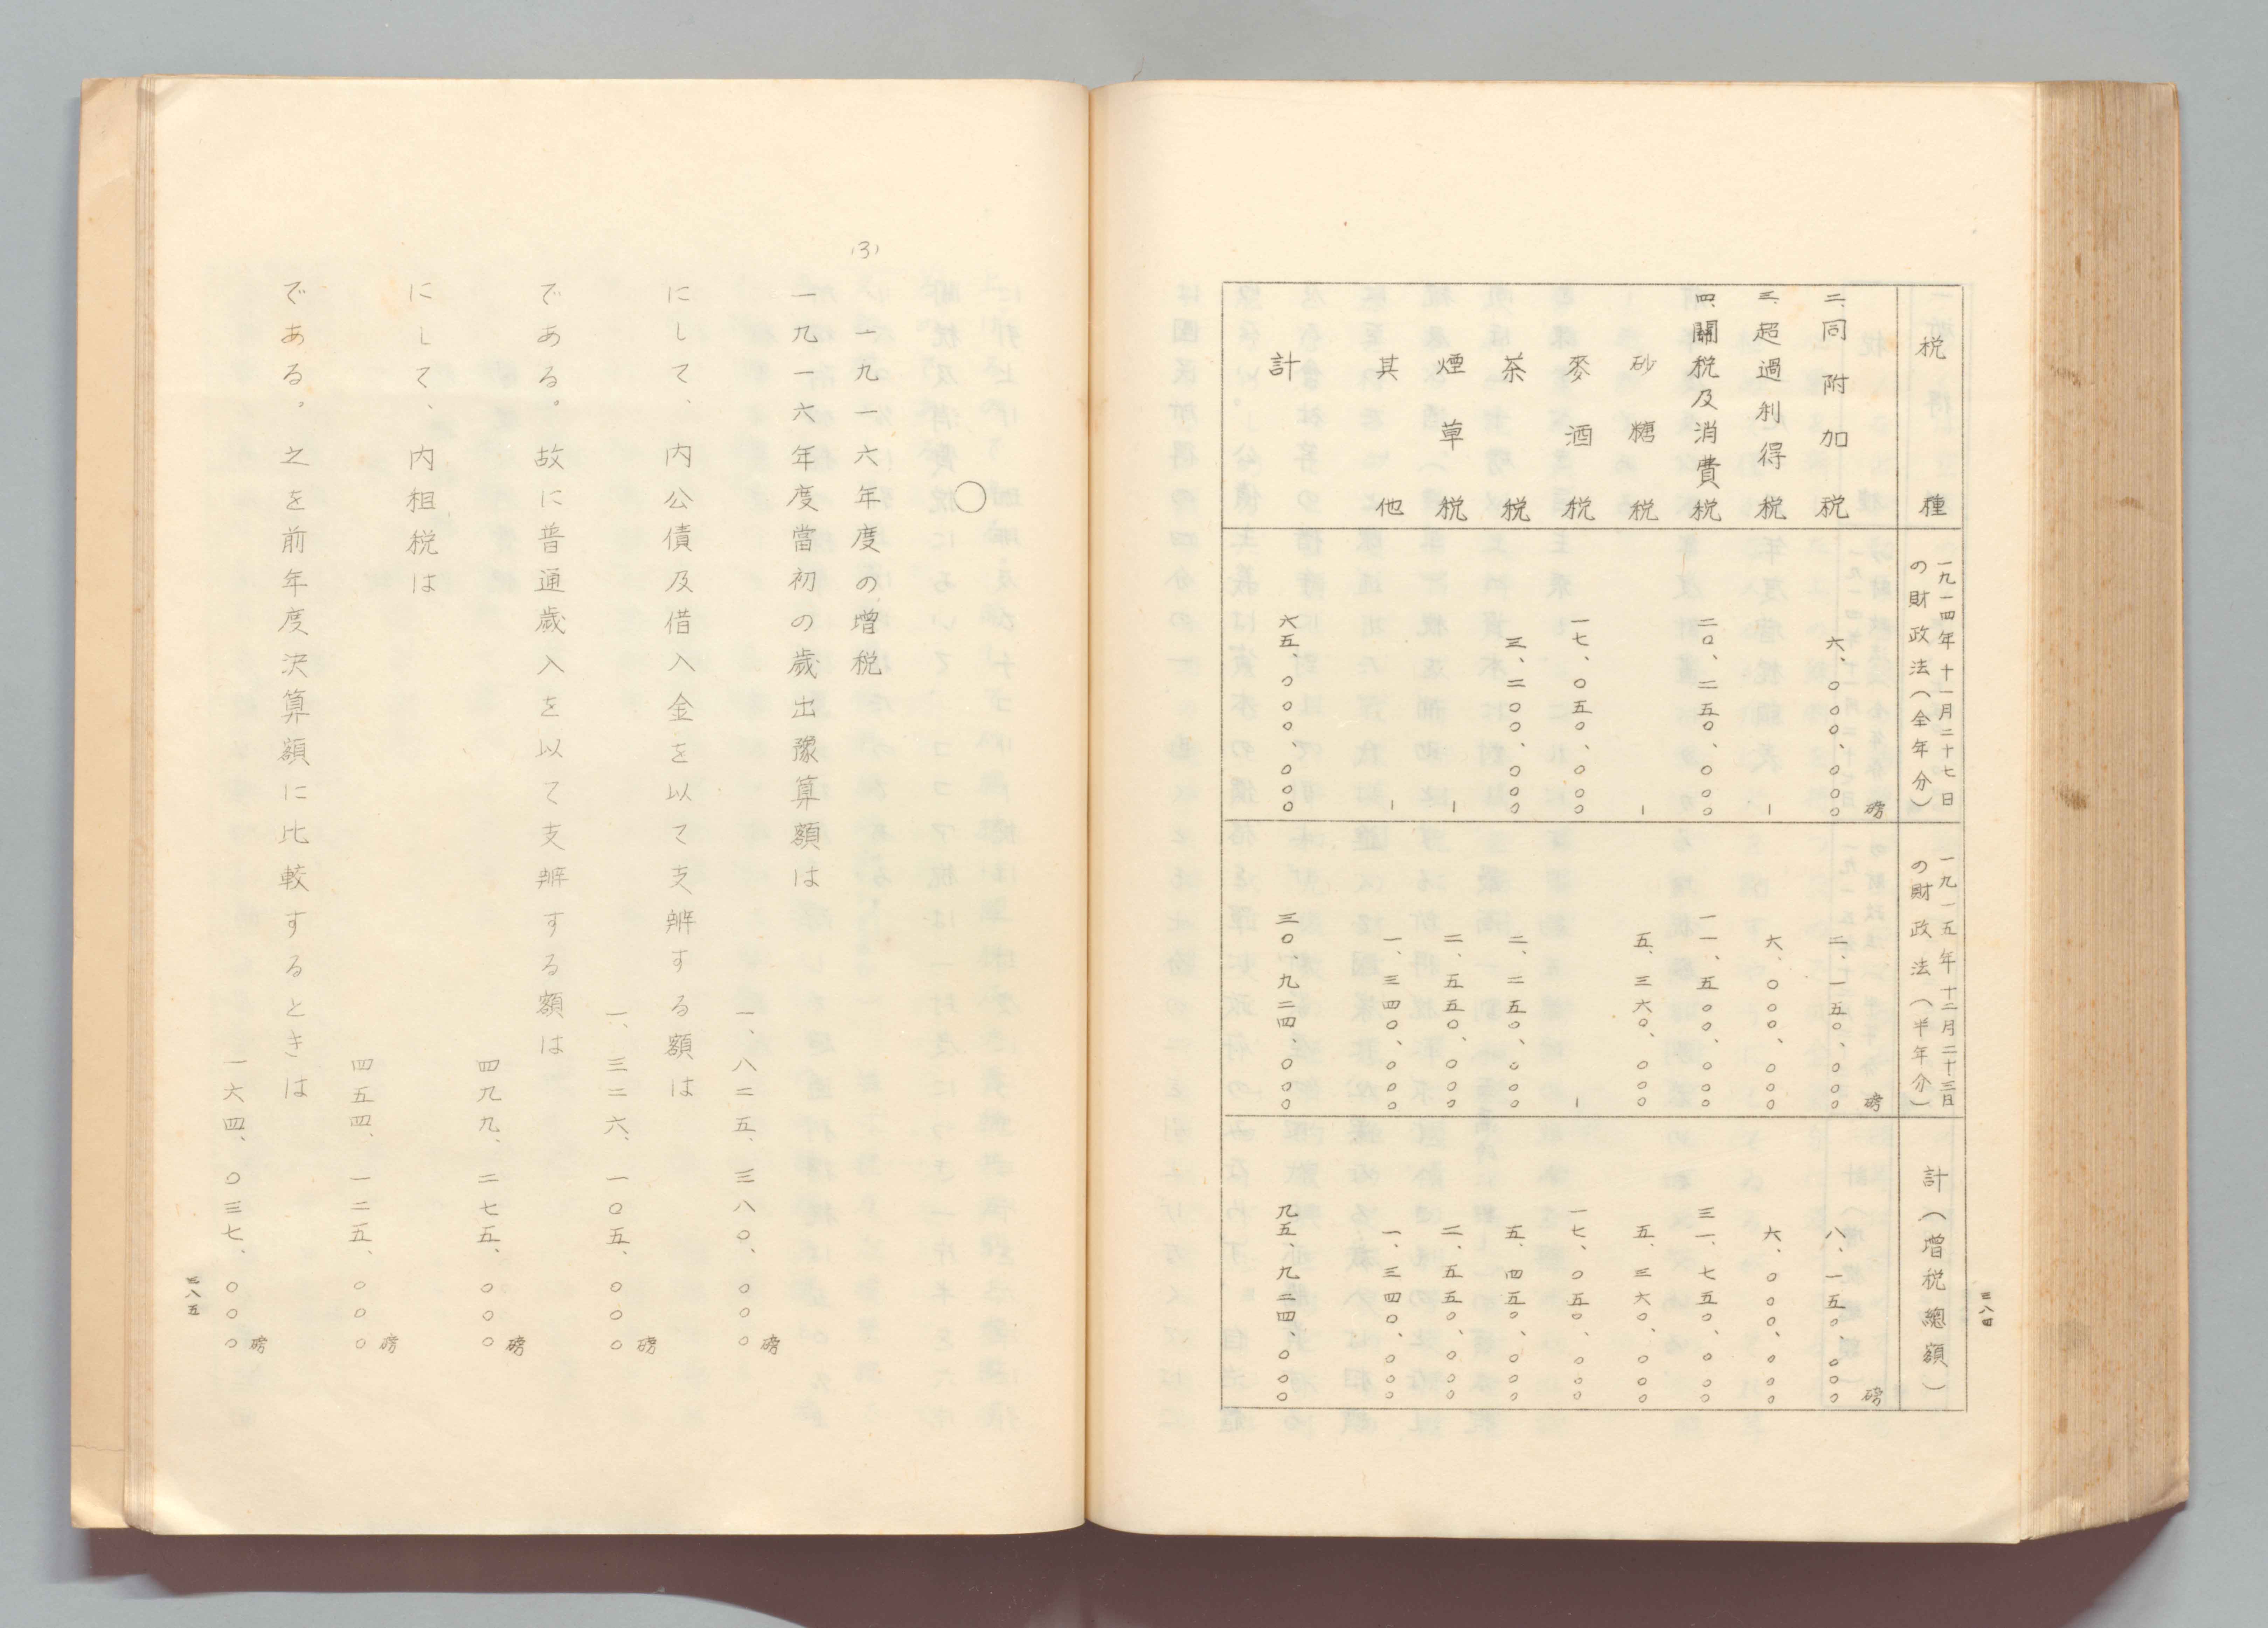 三八四
税種
一九一四年十一月二十七日
の財政法（全年分）
一九一五年十二月二十三日
の財政法（半年分）
計（増税總額）
磅
磅
磅
二、同附加税
六、〇〇〇、〇〇〇
二、一五〇、〇〇〇
八、一五〇、〇〇〇
三、超過利得税
ー
六、〇〇〇、〇〇〇
六、〇〇〇、〇〇〇
四、關税及消費税
二〇、二五〇、〇〇〇
一一、五〇〇、〇〇〇
三一、七五〇、〇〇〇
砂糖税
ー
五、三六〇、〇〇〇
五、三六〇、〇〇〇
麥酒税
一七、〇五〇、〇〇〇
ー
一七、〇五〇、〇〇〇
茶税
三、二〇〇、〇〇〇
二、二五〇、〇〇〇
五、四五〇、〇〇〇
煙草税
ー
二、五五〇、〇〇〇
二、五五〇、〇〇〇
其他
ー
一、三四〇、〇〇〇
一、三四〇、〇〇〇
計
六五、〇〇〇、〇〇〇
三〇、九二四、〇〇〇
九五、九二四、〇〇〇
〇
(3)　一九一六年度の増税
一九一六年度當初の歳出豫算額は
一、八二五、三八〇、〇〇〇磅
にして、内公債及借入金を以て支辨する額は
一、三二六、一〇五、〇〇〇磅
である。故に普通歳入を以て支辨する額は
四九九、二七五、〇〇〇磅
にして、内租税は
四五四、一二五、〇〇〇磅
である。之を前年度決算額に比較するときは
一六四、〇三七、〇〇〇磅
三八五